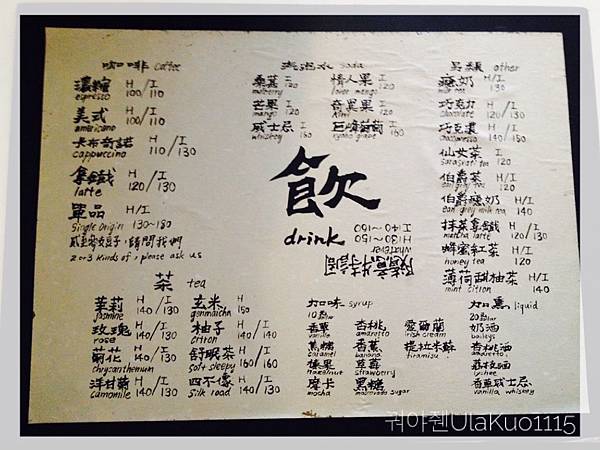 咖啡 coffee
濃縮 H/I
espresso 100/110
美式 H/I
americano 100/110
卡布奇諾 H/I
cappuccino 110/130
拿鐵 H/I
latte 120/130
單品 H/I
single origin 130~180
請問我們
2 or 3 kinds of, please ask us
soda
桑葚 I
mulberry 120
情人果 I
lover mango 120
芒果 I
mango 120
奇異果 I
kiwi 120
威士忌 I
whiskey 160
巨峰葡萄 I
kyoho grape 160
另類 other
milk tea 130
巧克力 H/I
chocolate 110/130
巧克濃 H/I
130/140
仙女茶 I
120
伯爵茶 H/I
earl grey tea 120/130
earl grey milk tea 140
抹茶拿鐵 H/I
matcha latte 120/130
蜂蜜紅茶 H/I
honey tea 120
薄荷甜柚茶 H/I
mint citron 140
飲
drink
隨意特調
whatever
H:130~150
I:140~160
茶 tea
茉莉 H/I
jasmine 140/130
玄米 H
genmaicha 150
玫瑰 H/I
rose 140/130
柚子 H/I
citron 140/140
菊花 H/I
chrysanthemum 140/130
舒眠茶 H/I
soft sleepy 160/160
洋甘菊 H/I
camomile 140/130
四不像 H/I
silk road 140/130
加味 syrup
10
香草 杏桃 愛爾蘭
vanilla irish cream
焦糖 香蕉 提拉米蘇
caramel banana tiramisu
榛果 草莓
hazelnut strawberry
摩卡 黑糖
mocha muscovado sugar
liquid
20
奶酒
baileys
杏桃酒
amaretto
荔枝酒
lychee
香草威士忌
vanilla whiskey
궈아췐UlaKuo1115